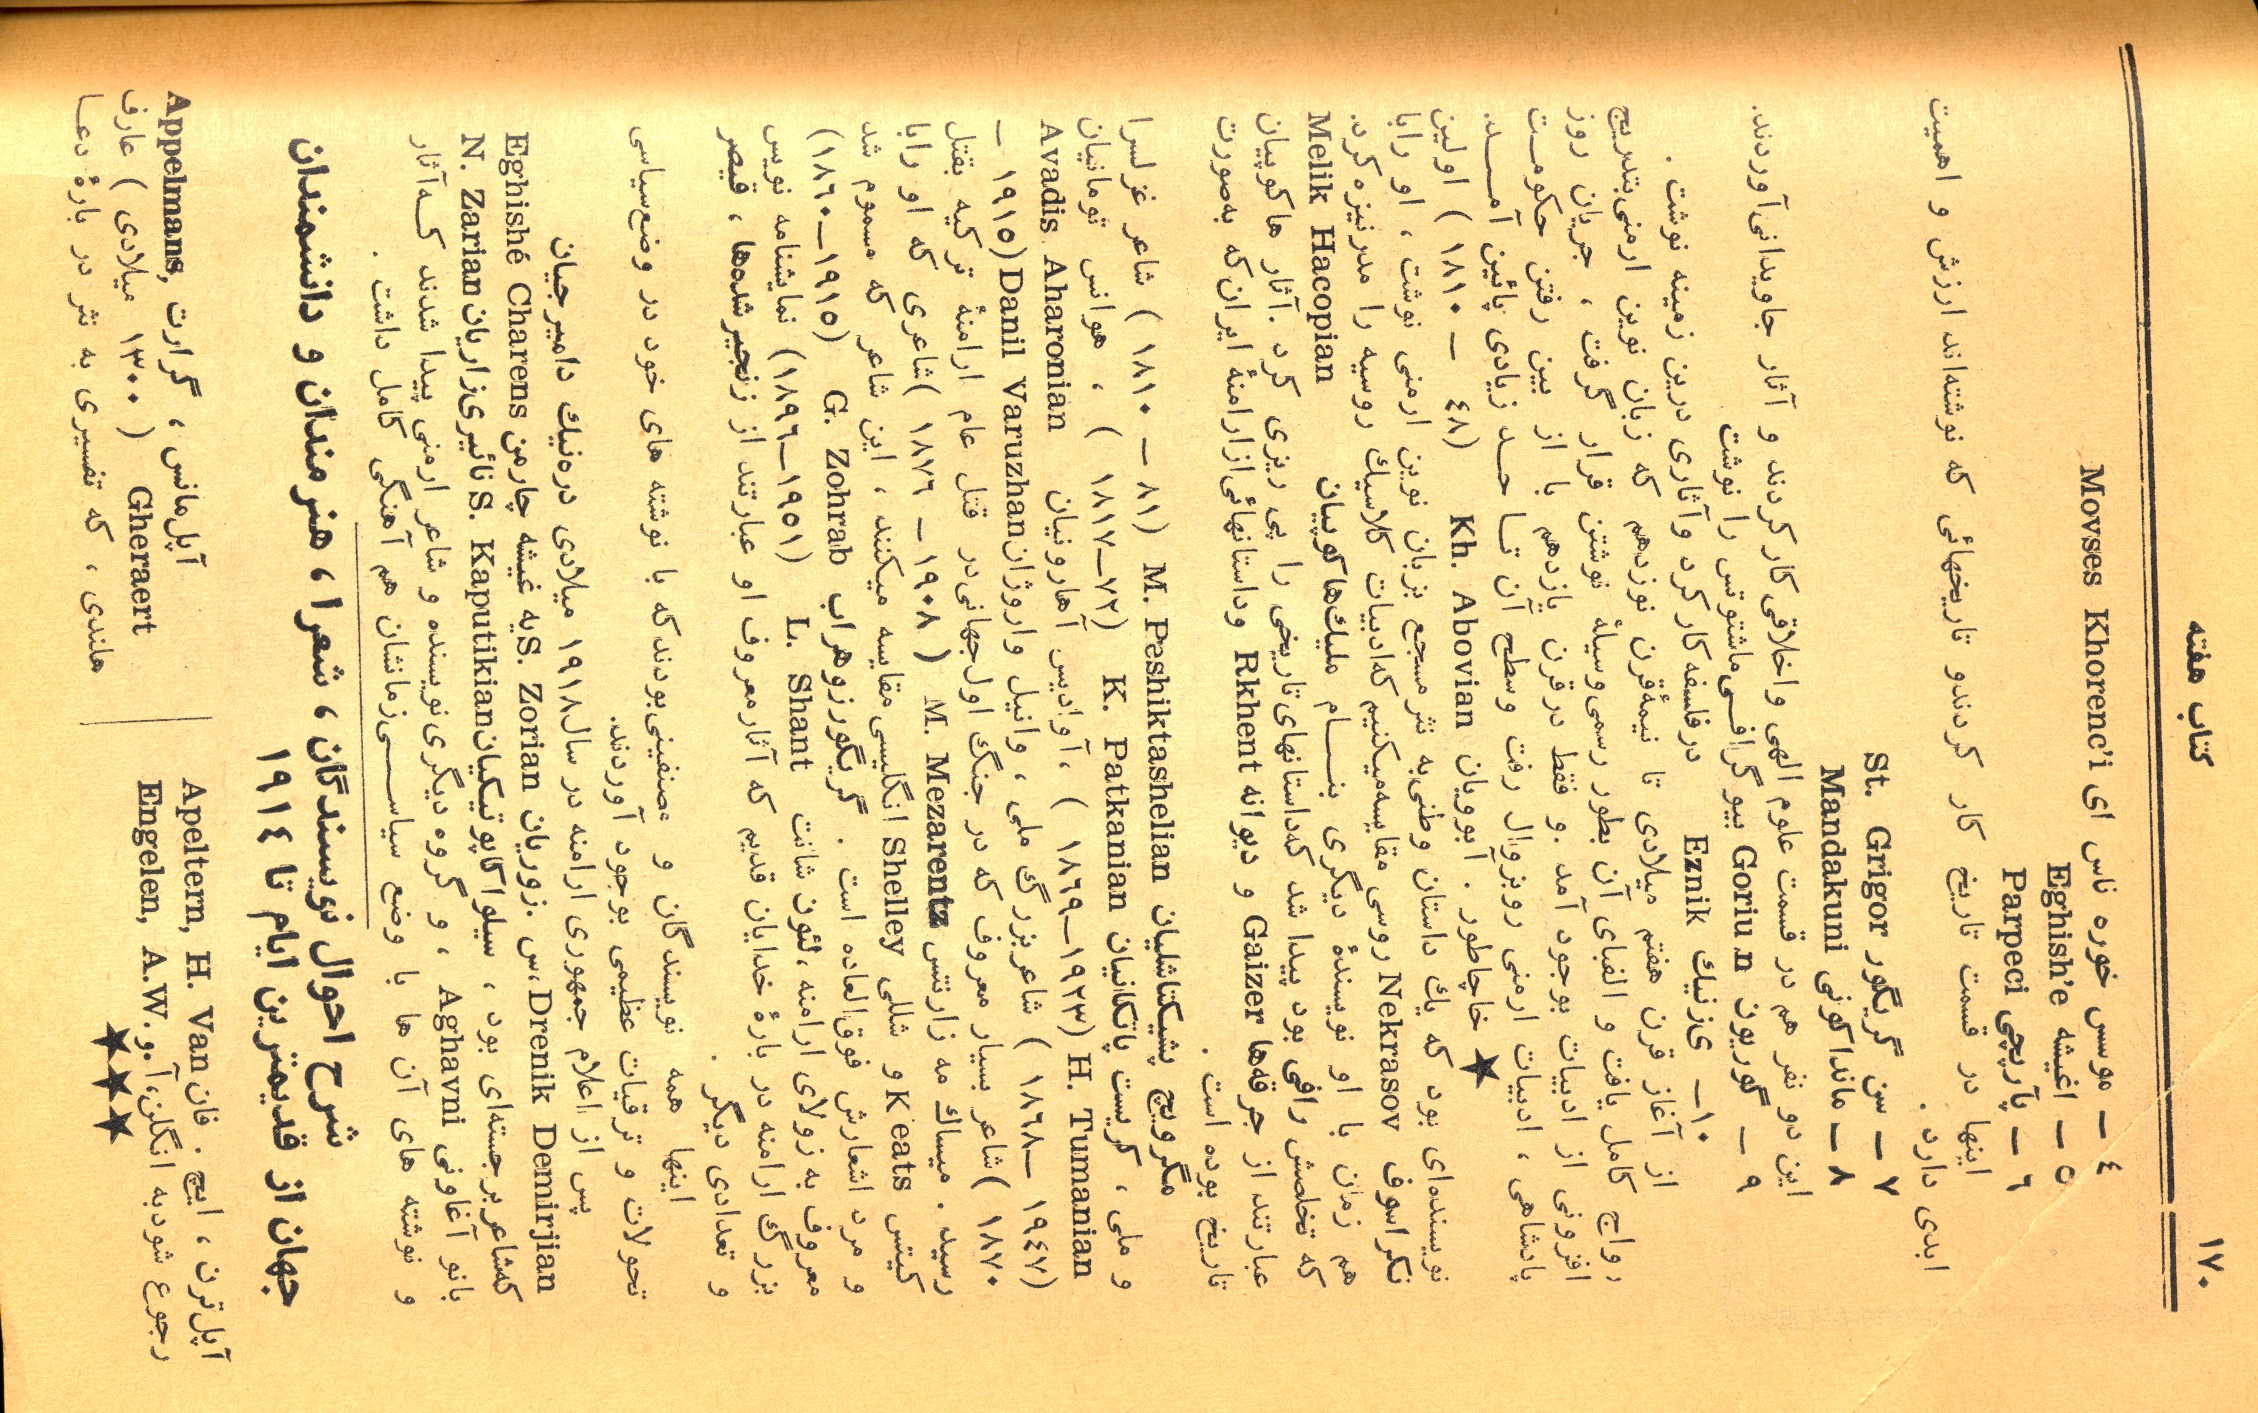 کتاب هفته
۱۷۰
۴ — موسس خوره ناس ای Movses Khorenc'i
۵ — اغیشه Eghish'e
۶ — پارپچی Parpeci
اینها در قسمت تاریخ کار کردندو تاریخهائی که نوشته‌اند ارزش و اهمیت
ابدی دارد.
۷ — سن گریگور St. Grigor
۸ — مانداکونی Mandakuni
این دو نفر هم در قسمت علوم الهی و اخلاقی کار کردند و آثار جاویدانی آوردند.
۹ — گوریون Goriun بیوگرافی ماشتوتس را نوشت
۱۰ — ی‌زنیك Eznik در فلسفه کار کرد و آثاری درین زمینه نوشت.
از آغاز قرن هفتم میلادی تا نیمهٔ قرن نوزدهم که زبان نوین ارمنی بتدریج
رواج کامل یافت و الفبای آن بطور رسمی وسیلهٔ نوشتن قرار گرفت، جریان روز
افزونی از ادبیات بوجود آمد. و فقط در قرن یازدهم با از بین رفتن حکومت
پادشاهی، ادبیات ارمنی رو بزوال رفت وسطح آن تا حد زیادی پائین آمد.
★ خاچاطور. آبوویان Kh. Abovian (۱۸۱۰ — ۴۸) اولین
نویسنده‌ای بود که یك داستان وطنی به نثر مسجع بزبان نوین ارمنی نوشت، او را با
نکراسوف Nekrasov روسی مقایسه میکنیم که ادبیات کلاسیك روسیه را مدرنیزه کرد.
هم زمان با او نویسندهٔ دیگری بنام ملیك هاکوپیان Melik Hacopian
که تخلصش رافی بود پیدا شد که داستانهای تاریخی را پی ریزی کرد. آثار هاکوپیان
عبارتند از جرقه‌ها Gaizer و دیوانه Rkhent وداستانهائی از ارامنهٔ ایران که به صورت
تاریخ بوده است.
مگرویچ پشیکتاشلیان M. Peshiktashelian (۱۸۱۰ — ۸۱) شاعر غزلسرا
و ملی، کریست پاتکانیان K. Patkanian (۱۸۱۷—۷۲)، هوانس تومانیان
H. Tumanian (۱۸۶۹—۱۹۲۳)، آوادیس آهارونیان Avadis Aharonian
(۱۸۶۸— ۱۹۴۷) شاعر بزرگ ملی، وانیل واروژان Danil Varuzhan (۱۹۱۵ —
۱۸۷۰) شاعر بسیار معروف که در جنگ اول جهانی در قتل عام ارامنهٔ ترکیه بقتل
رسید. میساك مه زارنتس M. Mezarentz (۱۹۰۸ – ۱۸۷۶) شاعری که او را با
کیتس Keats و شللی Shelley انگلیسی مقایسه میکنند، این شاعر که مسموم شد
و مرد اشعارش فوق‌العاده است. گریگور زوهراب G. Zohrab (۱۹۱۵—۱۸۶۰)
معروف به زولای ارامنه، لئون شانت L. Shant (۱۹۵۱—۱۸۹۶) نمایشنامه نویس
بزرگ ارامنه در بارهٔ خدایان قدیم که آثار معروف او عبارتند از زنجیر شده‌ها، قیصر
و تعدادی دیگر.
اینها همه نویسندگان و مصنفینی بودند که با نوشته های خود در وضع سیاسی
تحولات و ترقیات عظیمی بوجود آوردند.
پس از اعلام جمهوری ارامنه در سال ۱۹۱۸ میلادی دره نیك دامیرجیان
Drenik Demirjian، س. زوریان S. Zorian یه غیشه چارمن Eghishé Charens
که شاعر برجسته‌ای بود، سیلواکاپوتیکیان S. Kaputikian نائیری زاریان N. Zarian
بانو آغاونی Aghavni، و گروه دیگری نویسنده و شاعر ارمنی پیدا شدند که آثار
و نوشته های آن ها با وضع سیاسی زمانشان هم آهنگی کامل داشت.
شرح احوال نویسندگان، شعرا، هنرمندان و دانشمندان
جهان از قدیمترین ایام تا ۱۹۱۴
آپل‌ترن، ایچ. فان Apeltern, H. Van
رجوع شود به انگلن، آ.و. Engelen, A.W.
★★★
آپل‌مانس، گرارت Appelmans,
Gheraert (۱۳۰۰ میلادی) عارف
هلندی، که تفسیری به نثر در بارهٔ دعا